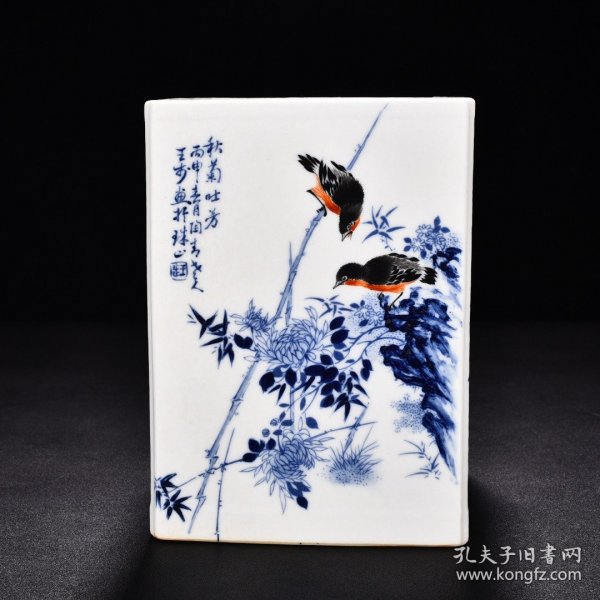 秋菊吐芳
丙申春月陶青老人
王步画於珠山
孔夫子旧書网
www.kongfz.com